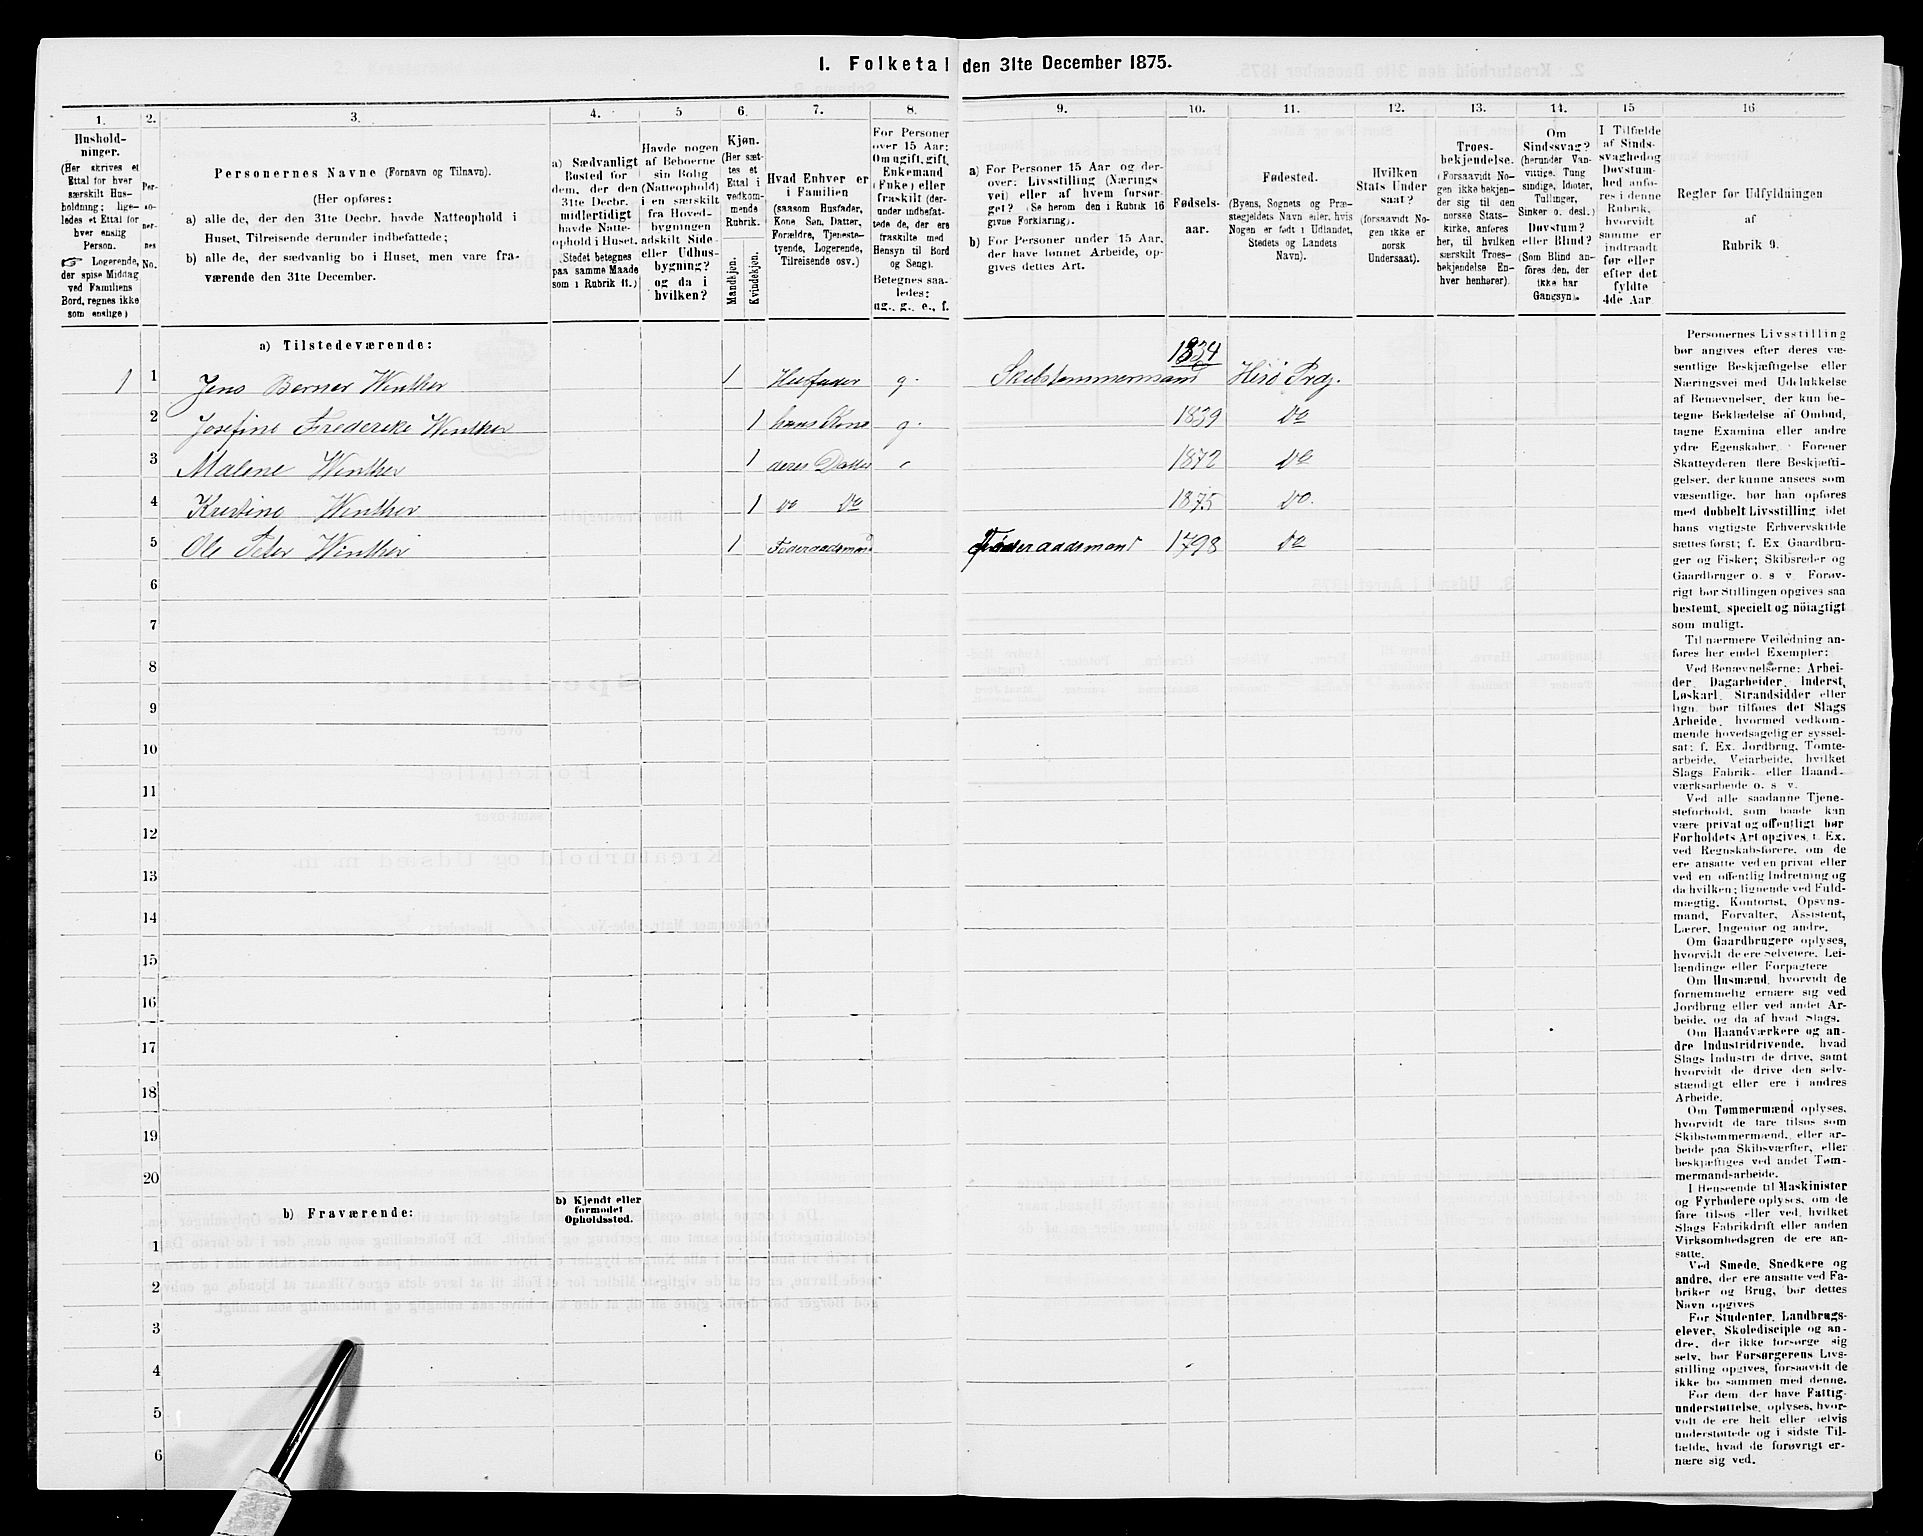 1. Folketal den 31te December 1875.
1.
Hushold-
ninger.
(Her skrives et
Ettal for hver
særskilt Hus-
holdning; lige-
ledes et Ettal for
hver enslig
Person.
☞ Logerende,
der spise Middag
ved Familiens
Bord, regnes ikke
som enslige)
2.
Per-
so-
ner-
nes
No.
3.
Personernes Navne (Fornavn og Tilnavn).
(Her opføres:
a) alle de, der den 31te Decbr. havde Natteophold i
Huset, Tilreisende derunder indbefattede;
b) alle de, der sædvanlig bo i Huset, men vare fra-
værende den 31te December.
4.
a) Sædvanligt
Bosted for
dem, der den
31te Decbr.
midlertidigt
havde Natte-
ophold i Huset.
(Stedet betegnes
paa samme Maade
som i Rubrik 11.)
5
Havde nogen
af Beboerne
sin Bolig
(Natteophold)
i en særskilt
fra Hoved-
bygningen
adskilt Side-
eller Udhus-
bygning?
og da i
hvilken?
6.
Kjøn.
(Her sæt-
tes et
Ettal i
vedkom-
mende
Rubrik.
Mandkjøn.
Kvindekjøn.
7.
Hvad Enhver er
i Familien
(saasom Husfader,
Kone, Søn, Datter,
Forældre, Tjeneste-
tyende, Logerende,
Tilreisende osv.)
8.
For Personer
over 15 Aar:
Om ugift, gift,
Enkemand
(Enke) eller
fraskilt (der-
under indbefat-
tede de, der ere
fraskilte med
Hensyn til Bord
og Seng).
Betegnes saa-
ledes:
ug., g., e., f.
9.
a) For Personer 15 Aar og der-
over: Livsstilling (Nærings-
vei) eller af hvem forsør-
get? (Se herom den i Rubrik 16
givne Forklaring).
b) For Personer under 15 Aar,
der have lønnet Arbeide, op-
gives dettes Art.
10.
Fødsels-
aar.
11.
Fødested.
(Byens, Sognets og Præ-
stegjeldets Navn eller, hvis
Nogen er født i Udlandet,
Stedets og Landets
Navn).
12.
Hvilken
Stats Under
saat?
(forsaavidt No-
gen ikke er
norsk
Undersaat).
13.
Troes-
bekjendelse.
(Forsaavidt No-
gen ikke bekjen-
der sig til den
norske Stats-
kirke, anføres
her, til hvilken
særskilt Troes-
bekjendelse En-
hver henhører).
14.
Om
Sindssvag?
(herunder Van-
vittige, Idioter,
Tullinger,
Sinker o. desl.)
Døvstum?
eller Blind?
(Som Blind an-
føres den, der
ikke har
Gangsyn).
15
I Tilfælde
af Sinds-
svaghed og
Døvstum-
hed anfø-
res i denne
Rubrik,
hvorvidt
samme er
indtraadt
før eller
efter det
fyldte
4de Aar
16
Regler før Udfyldningen
af
Rubrik 9.
a) Tilstedeværende:
1 1 Jens Berner Winther 1 Husfader g. Skibstømmermand 1834 Hisø Prdg.
2 Josefine Frederike Winther 1 hans Kone g. 1839 do
3 Malene Winther 1 deres Datter 1872 do
4 Kristine Winther 1 do do 1875 do.
5 Ole Peter Winther 1 Føderaadsmand Føderaadsmand 1798 do
6
7
8
9
10
11
12
13
14
15
16
17
18
19
20
b) Fraværende:
b) Kjendt eller
formodet
Opholdssted.
1
2
3
4
5
6
Personernes Livsstilling
bør angives efter deres væ-
sentlige Beskjæftigelse eller
Næringsvei med Udelukkelse
af Benævnelser, der kun be-
tegne Beklædelse af Ombud,
tagne Examina eller andre
ydre Egenskaber. Forener
Skatteyderen flere Beskjæfti-
gelser, der kunne ansees som
væsentlige, bør han opføres
med dobbelt Livsstilling idet
hans vigtigste Erhvervskilde
sættes først; f. Ex Gaardbru-
ger og Fisker; Skibsreder og
Gaardbruger o. s v. Forøv-
rigt bør Stillingen opgives saa
bestemt, specielt og nöiagtigt
som muligt.
Til nærmere Veiledning an-
føres her endel Exempler:
Ved Benævnelserne: Arbei-
der, Dagarbeider, Inderst,
Løskarl, Strandsidder eller
lign. bør tilføies det Slags
Arbeide, hvormed vedkom-
mende hovedsagelig er syssel-
sat; f. Ex. Jordbrug, Tomte-
arbeide, Veiarbeide, hvilket
Slags Fabrik- eller Haand-
værksarbeide o. s v.
Ved alle saadanne Tjene-
steforhold, som baade kan
være privat og offentligt bør
Forholdets Art opgives, f. Ex.
ved Regnskabsførere, om de
ere ansatte ved en privat eller
ved en offentlig Indretning og
da hvilken; lignende ved Fuld-
mægtig, Kontorist, Opsyns-
mand, Forvalter, Assistent,
Lærer, Ingeniør og andre.
Om Gaardbrugere oplyses,
hvorvidt de ere Selveiere, Lei-
lændinge eller Forpagtere
Om Husmænd, hvorvidt de
fornemmelig ernære sig ved
Jordbrug eller ved andet Ar-
beide, og da af hvad Slags.
Om Haandværkere og an-
dre Industridrivende, hvad
Slags Industri de drive, samt
hvorvidt de drive den selv-
stændigt eller ere i andres
Arbeide.
Om Tømmermænd oplyses,
hvorvidt de fare tilsøs som
Skibstømmermænd, eller ar-
beide paa Skibsværfter, eller
beskjæftiges ved andet Tøm-
mermandsarbeide.
I Henseende til Maskinister
og Fyrbødere oplyses, om de
fare tilsøs eller ved hvilket
Slags Fabrikdrift eller anden
Virksomhedsgren de ere an-
satte.
Ved Smede, Snedkere og
andre, der ere ansatte ved Fa-
briker og Brug, bør dettes
Navn opgives
For Studenter, Landbrugs-
elever, Skoledisciple og an-
dre, der ikke forsørge sig
selv, bør Forsørgerens Livs-
stilling opgives, forsaavidt de
ikke bo sammen med denne.
For dem, der have Fattig-
understøttelse, oplyses, hvor-
vidt de ere helt eller delvis
understøttede og i sidste Til-
fælde, hvad de forøvrigt er-
nære sig ved.